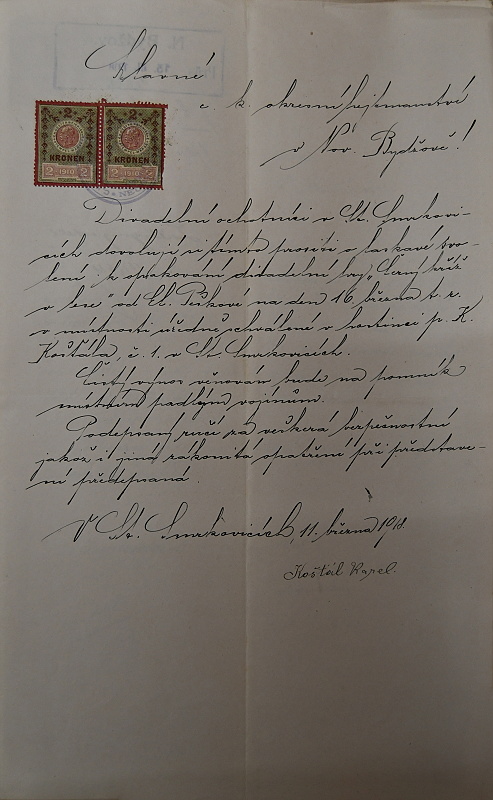 Slavné
c. k. okresní hejtmanství
v Nov. Bydžově!
2 2
KRONEN KRONEN
2 1910 2 2 1910 2
Divadelní ochotníci v St. Smrkovi-
cích dovolují si tímto prositi o laskavé svo-
lení k opakování divadelní hry „Černý kříž
v lese" od El. Peškové na den 16. března t. r.
v místnosti úředně schválené v hostinci p. K.
Košťála, č. 1. v St. Smrkovicích.
Čistý výnos věnován bude na pomník
místním padlým vojínům.
Podepsaný ručí za veškerá bezpečnostní
jakož i jiná zákonitá opatření při představe-
ní předepsaná.
V St. Smrkovicích, 11. března 1918.
Košťál Karel.